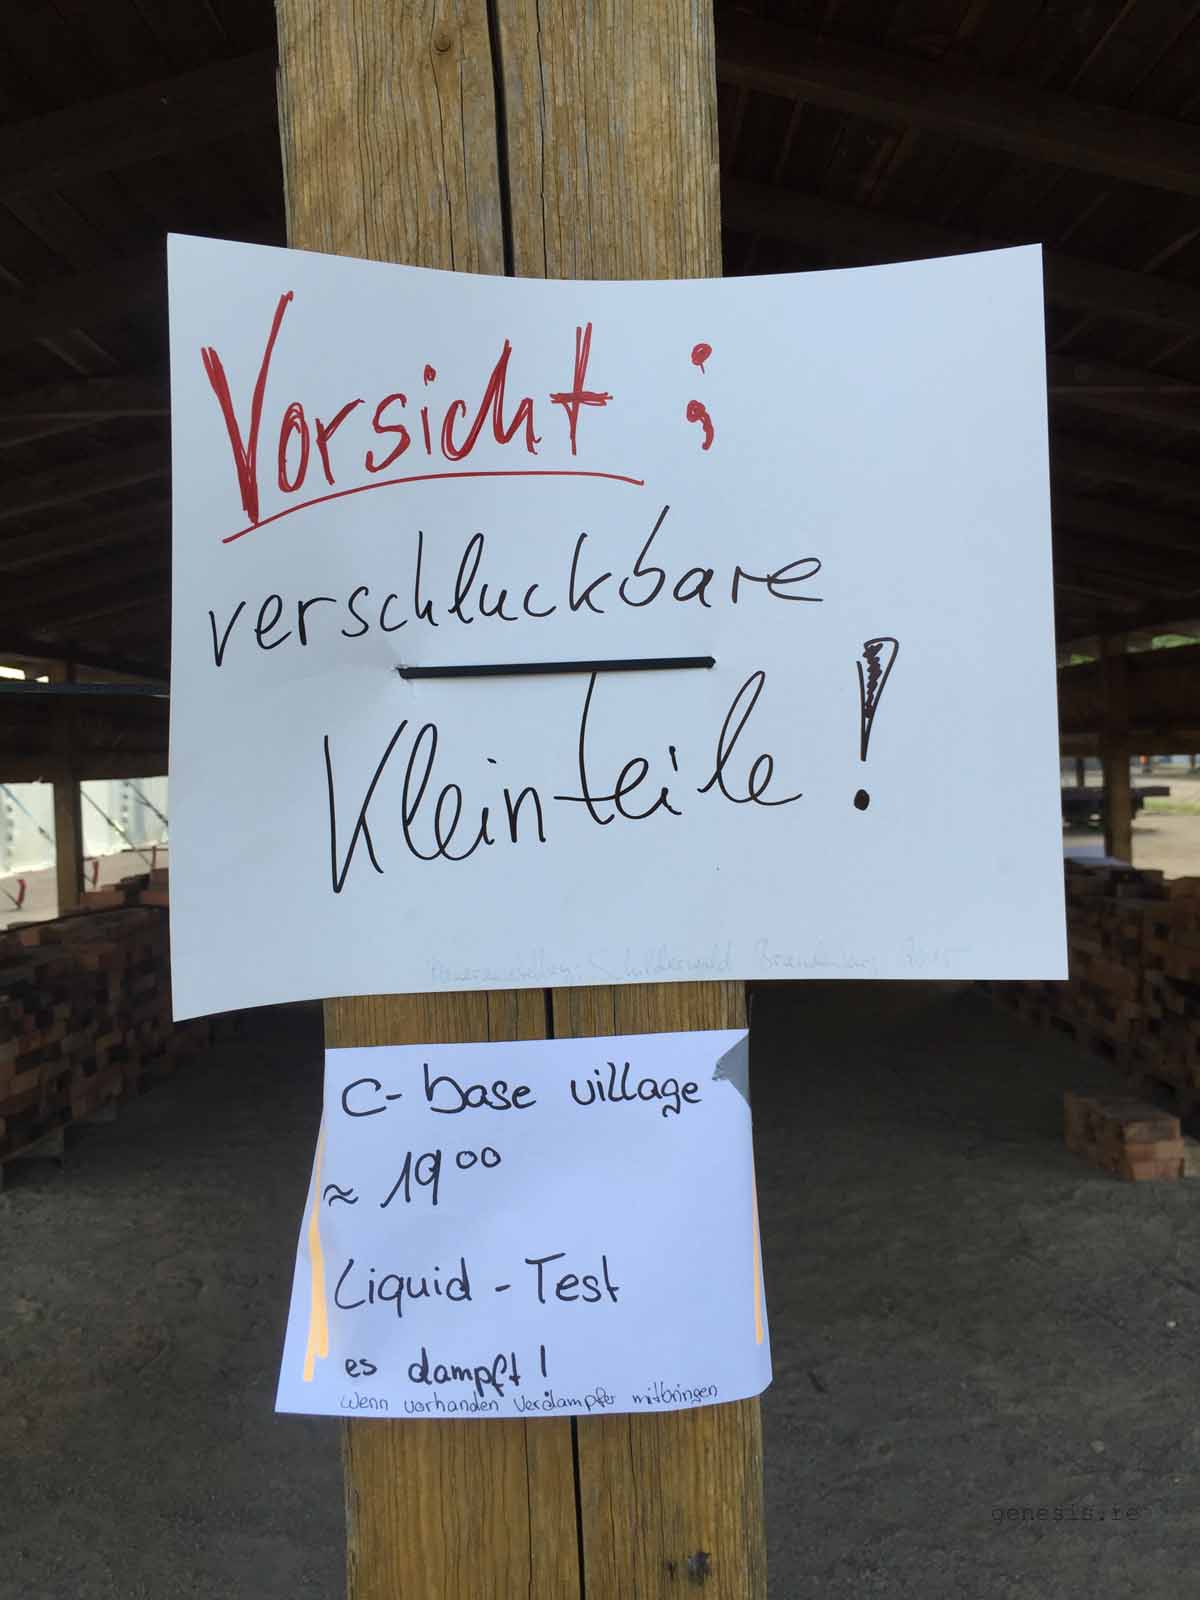 Vorsicht ;
verschluckbare
Kleinteile !
Schilderwald Brandenburg 2015
c-base village
≈ 19⁰⁰
Liquid - Test
es dampft !
Wenn vorhanden Verdampfer mitbringen
genesis.re